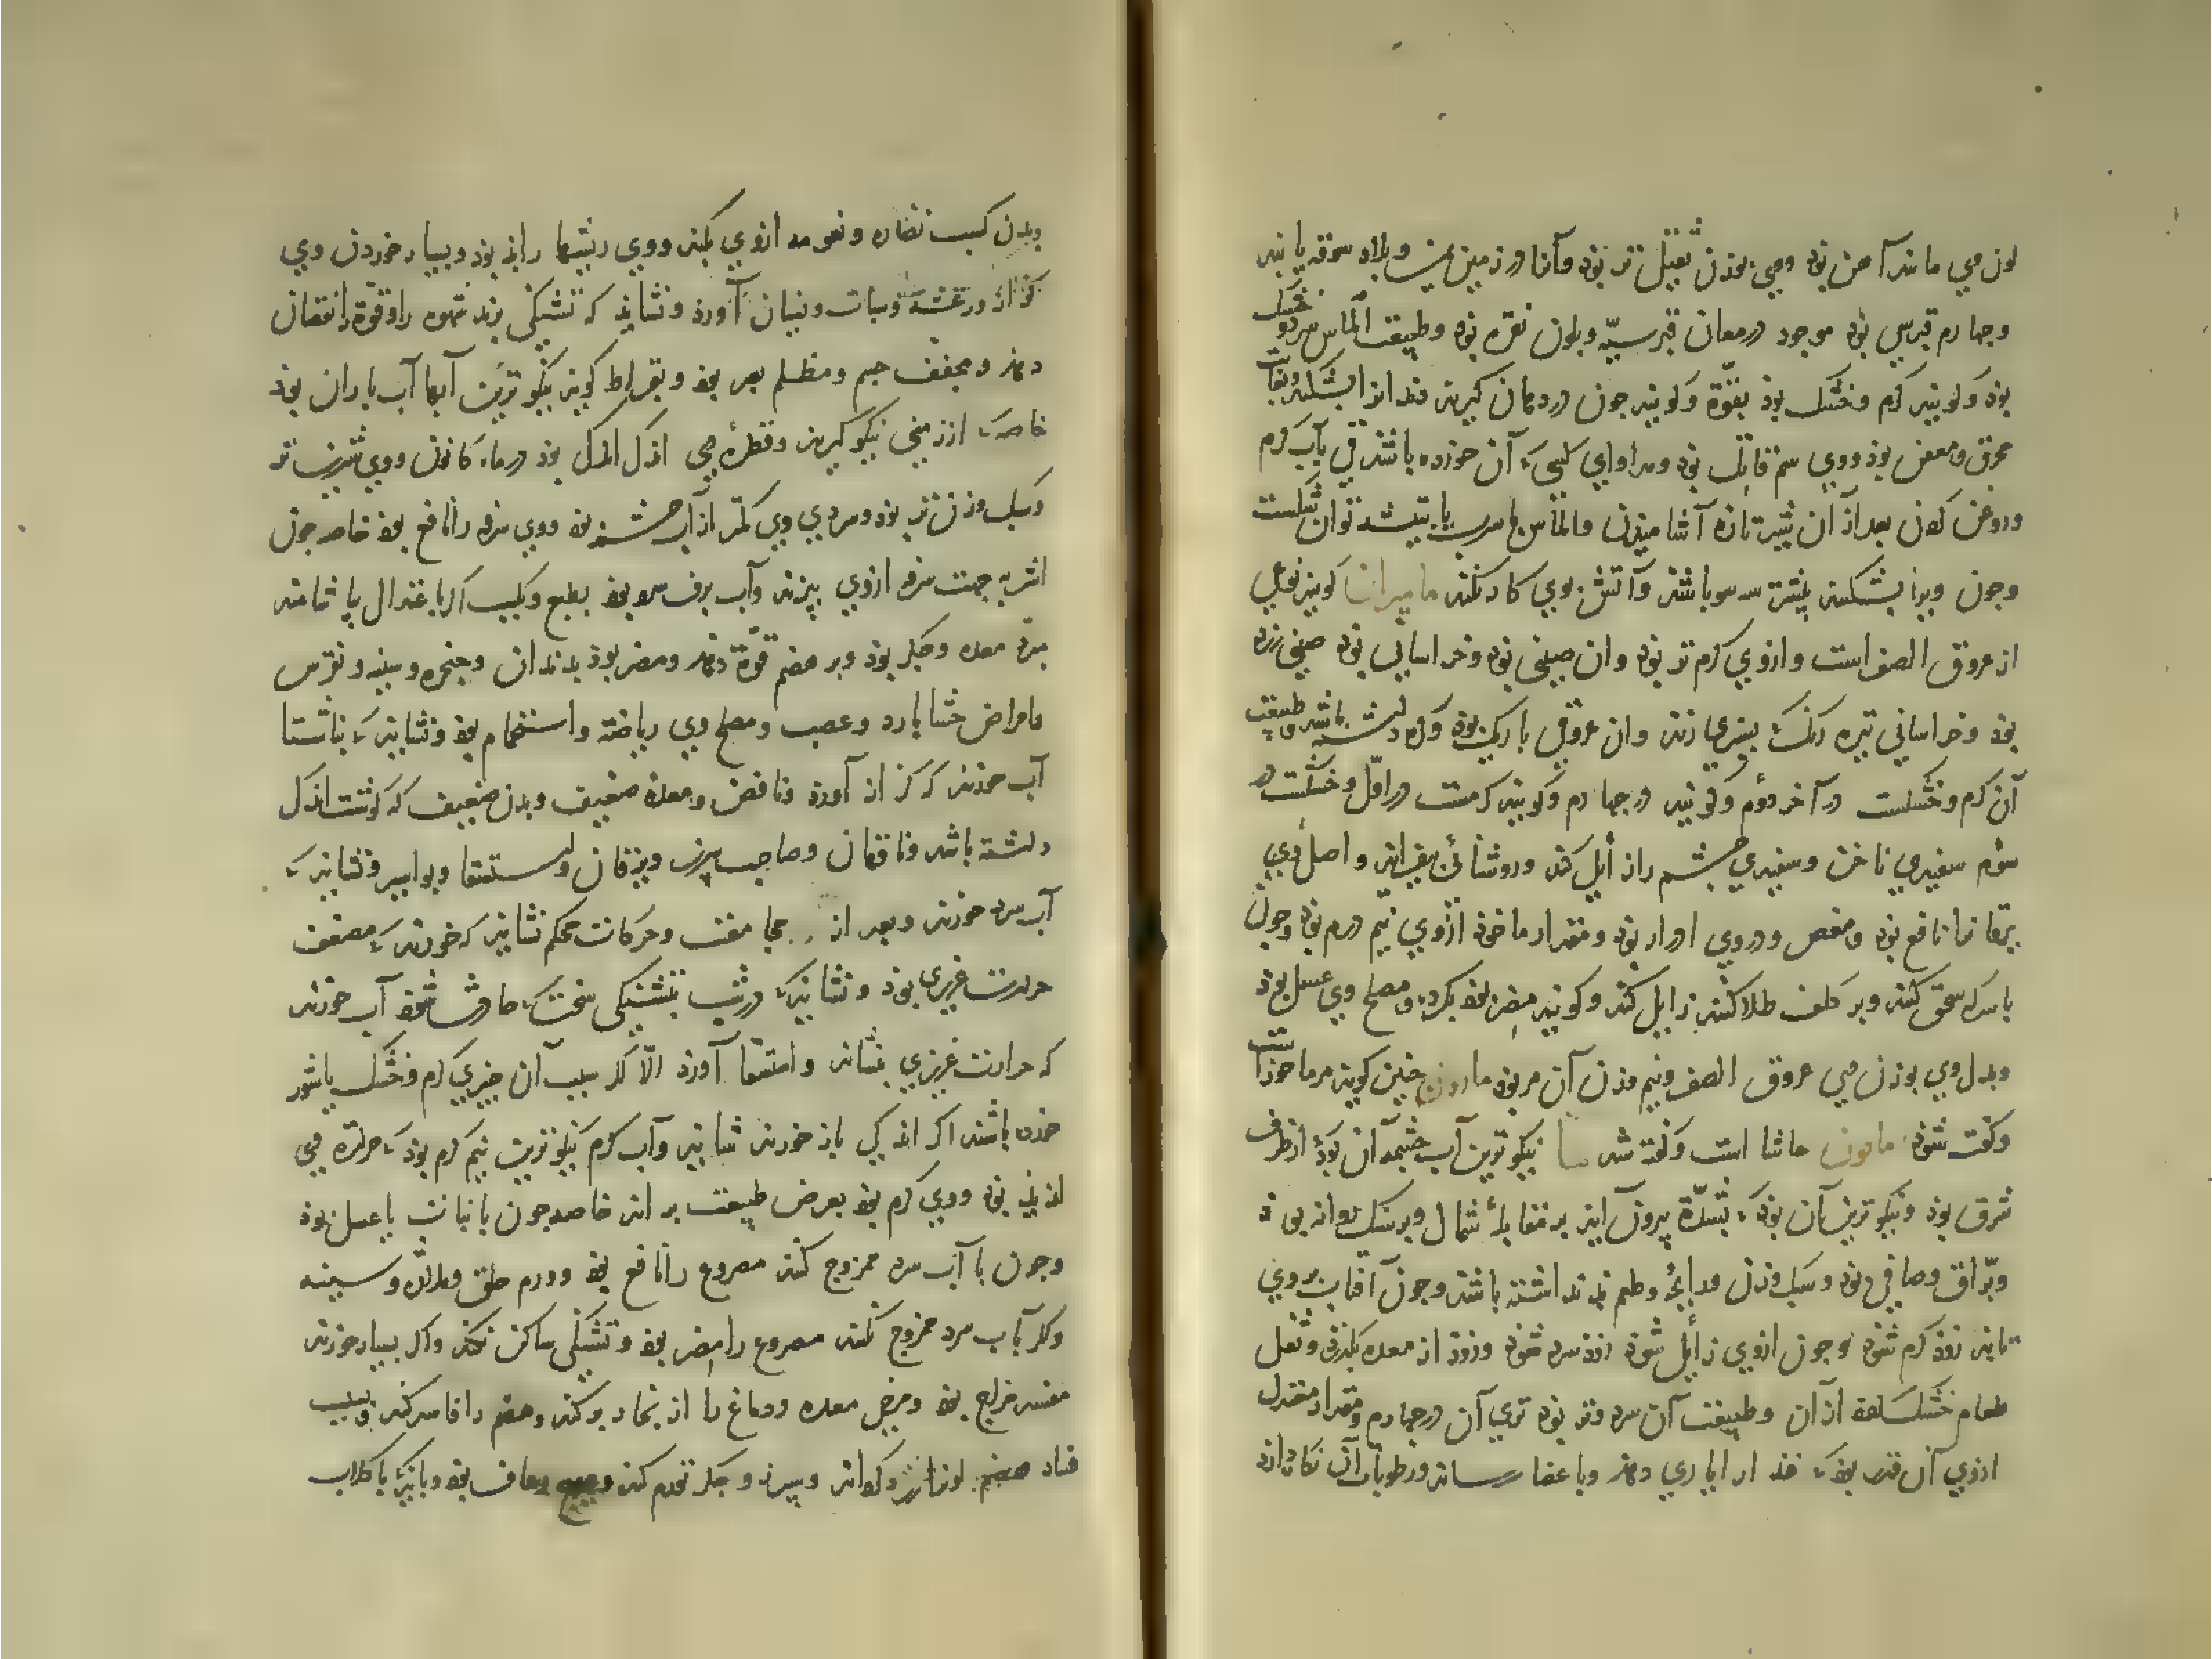 لون وی مانند آهن بود و وی بوزن ثقیل تر بود و آنرا در زمین یمن و بلاد سوقه یابند
وچهارم قبرسی بود موجود در معادن قبرسیّه و بلون نقره بود و طبیعت الماس سرد و خشک
بود و کویند کرم و خشک بود بقوّة و کویند چون در دهان کیرند دندانرا بشکند و بغایت
محرق و معفن بود و وی سم قاتل بود و مداوای کسی که آن خورده باشد قی بآب کرم
و روغن کردن بعد از آن شیر تازه آشامیدن و الماس باسرب باید شکست
وچون ویرا بشکنند بیشتر سه سو باشد و آتش بوی کار نکند مامیران کویند نوعی
از عروق الصفر است و از وی کرم تر بود و آن صینی بود و خراسانی بود صینی زرد
بود و خراسانی تیره رنک بسبزی زند و آن عروقی باریک بود و کره داشته باشد و طبیعت
آن کرم و خشکست در آخر دوّم و کویند در چهارم و کویند کرمست در اوّل و خشکست در
سوم سفیدی ناخن و سفیدی چشم را زایل کند و روشنائی بیفزاید و اصل وی
یرقانرا نافع بود و مغص و در وی ادرار بود و مقدار ماخوذ از وی نیم درم بود و چون
باسرکه سحق کنند و بر کلف طلا کنند زایل کند و کویند مضر بود بکرده و مصلح وی عسل بود
و بدل وی بوزن وی عروق الصفر و نیم وزن آن مر بود مارون چنین کویند مرماحوز است
و کفته شود مامون حاشا است و کفته شد ما نیکوترین آب چشمه آن بود که از طرف
شرق بود و نیکوترین آن بود که بشدّة بیرون آید بر مقابلهٔ شمال و بر سنک روانه بود
و برّاق و صافی بود و سبک وزن و رایحه و طعم بد نداشته باشد و چون آفتاب بر وی
تابد زود کرم شود و چون از وی زایل شود زود سرد شود و زود از معده بکذرد و ثفل
طعام خشک از آن و طبیعت آن سرد و تر بود تری آن در چهارم و مقدار معتدل
از وی آن قدر بود که غذا را یاری دهد و باعضا رساند و رطوبات آن نکاه دارد
و بدن کسب نضاره و نعومه از وی بکند و وی ریشها را بد بود و بسیار خوردن وی
کزاز و رعشه و سبات و نسیان آورد و نشاید که تشنکی برند شهوه را و قوّة را نقصان
دهد و مجفف جسم و مظلم بصر بود و بقراط کوید نیکوترین آبها آب باران بود
خاصه که از زمینی نیکو کیرند و قطرهٔ وی اندک اندک بود در ماه کانون و وی شیرین تر
و سبک وزن تر بود و سردی وی کمتر از آب چشمه بود و وی سرفه را نافع بود خاصه چون
اشربه جهت سرفه از وی بپزند و آب برف سرد بود بطبع و بکسب اکر باعتدال بیاشامند
مبرّد معده و جکر بود و بر هضم قوّة دهد و مضر بود بدندان و حنجره و سینه و نقرس
و امراض حشا بارد و عصب و مصلح وی ریاضة و استحمام بود و نشاید که بناشتا
آب خورند که کزاز آورد و ناقض و معده ضعیف و بدن ضعیف که کوشت اندک
داشته باشد و ناقهان و صاحب سپرز و یرقان و استسقا و بواسیر و نشاید که
آب سرد خورند و بعد از مجامعت و حرکات محکم نشاید که خورند که مضعف
حرارت غریزی بود و نشاید که در شب تشنکی سخت که حادث شود آب خورند
که حرارت غریزی بنشاند و استسقا آورد الّا اکر سبب آن چیزی کرم و خشک یا شور
خورده باشند اکر اندکی باز خورند شاید و آب کرم نیکوترین نیم کرم بود که حرارة وی
لذیذ بود و وی کرم بود بعرض طبیعت براند خاصه چون با نبات یا عسل بود
و چون با آب سرد ممزوج کنند مصروع را نافع بود و ورم حلق و ملازه و سینه
و اکر بآب سرد ممزوج نکنند مصروع را مضر بود و تشنکی ساکن نکند و اکر بسیار خورند
مفسد مزاج بود و مرخی معده و دماغ را از بخار پر کند و هضم را فاسد کند و بسبب
فساد هضم و سپرز و جکر تورم کند و رعاف بود و باید که با کلاب